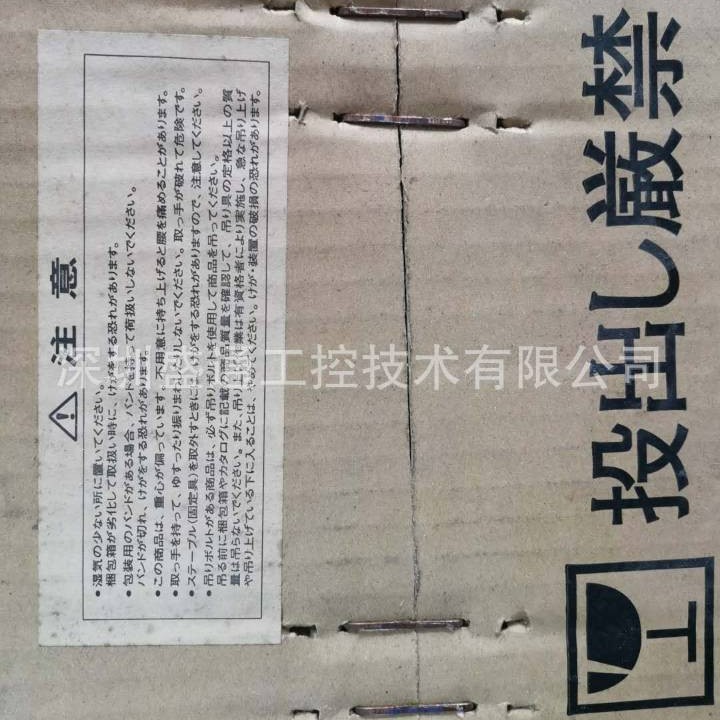 ⚠注意
•湿気の少ない所に置いてください。
梱包箱が劣化して取扱い時に、けがをする恐れがあります。
•包装用のバンドがある場合、バンドを持って荷扱いしないでください。
バンドが切れ、けがをする恐れがあります。
•この商品は、重心が偏っています。不用意に持ち上げると腰を痛めることがあります。
•取っ手を持って、ゆすったり振りまわしたりしないでください。取っ手が破れて危険です。
•ステープル(固定具)を取外すときにけがをする恐れがありますので、注意してください。
•吊りボルトがある商品は、必ず吊りボルトを使用して商品を吊ってください。
吊る前に梱包箱やカタログに記載の商品質量を確認して、吊り具の定格以上の質
量は吊らないでください。また、吊り作業は有資格者により実施し、急な吊り上げ
や吊り上げている下に入ることは、やめてください。けが・装置の破損の恐れがあります。
投出し厳禁
深圳 工控技术有限公司